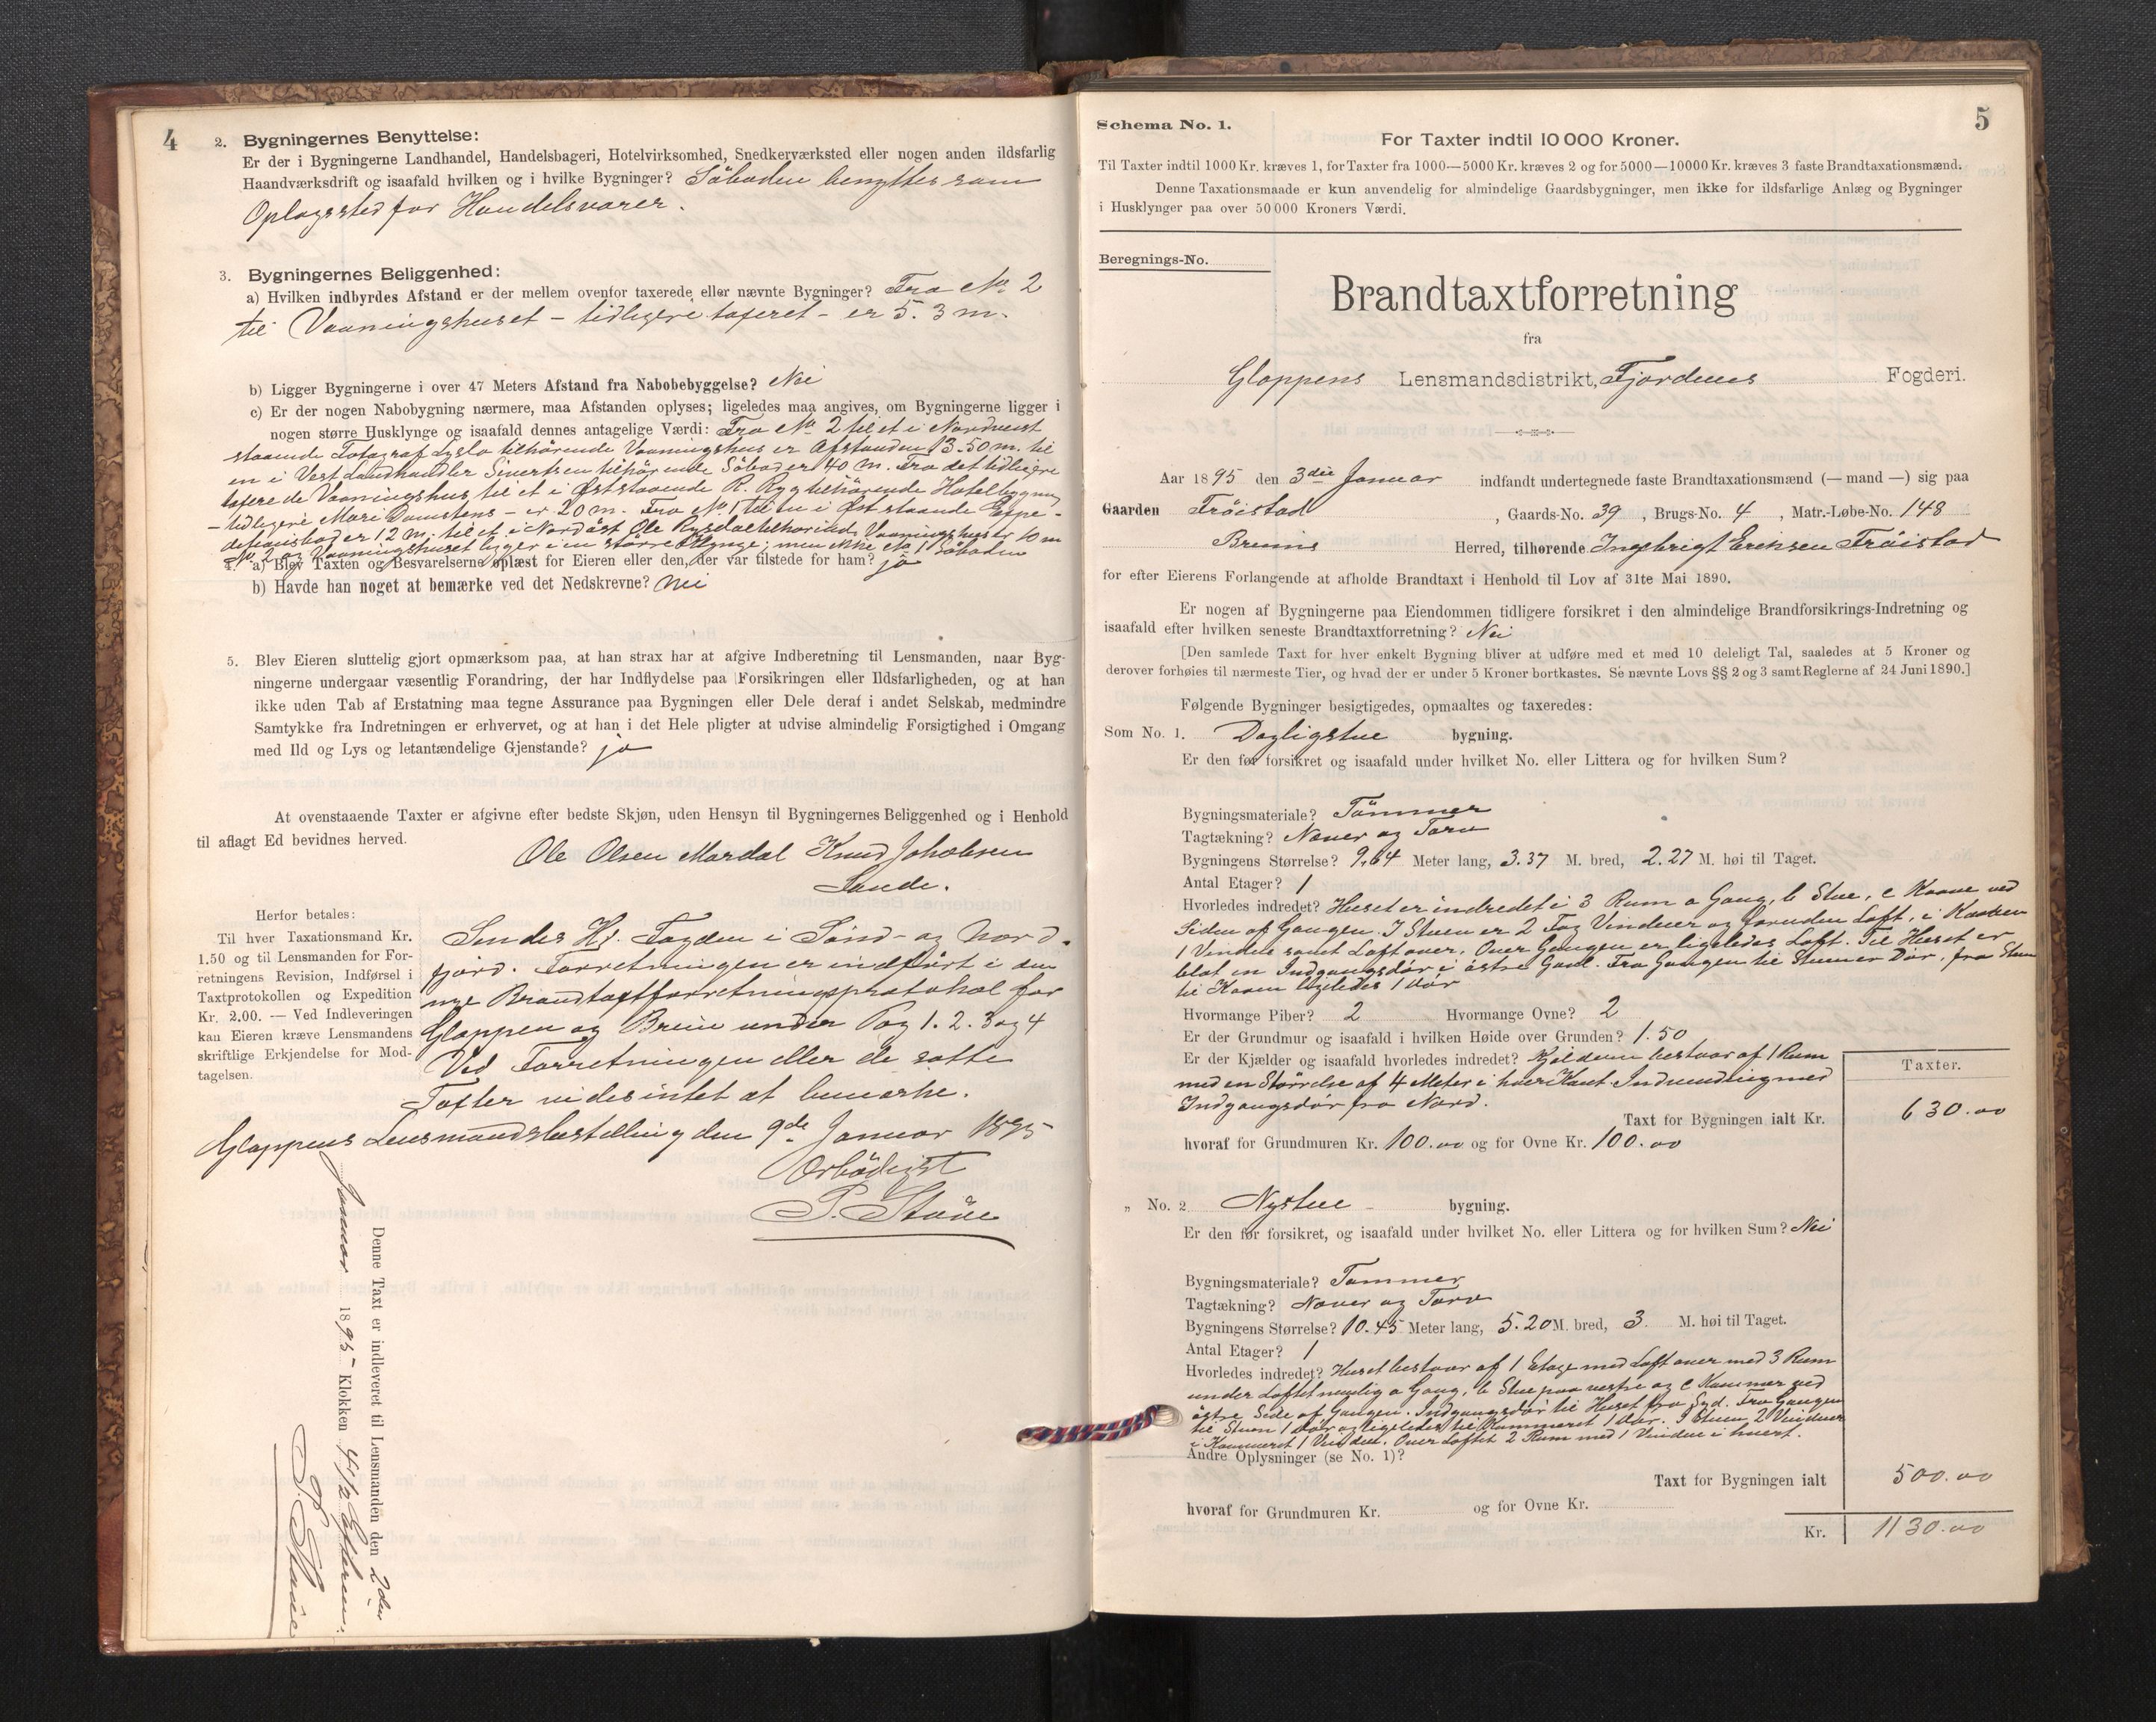 4
2. Bygningernes Benyttelse:
Er der i Bygningerne Landhandel, Handelsbageri, Hotelvirksomhed, Snedkerværksted eller nogen anden ildsfarlig
Haandværksdrift og isaafald hvilken og i hvilke Bygninger? Söboden benyttes som
Oplagssted for Handelsvarer.
3. Bygningernes Beliggenhed:
a) Hvilken indbyrdes Afstand er der mellem ovenfor taxerede eller nævnte Bygninger? Fra No 2
til Vaaningshuset - tidligere taxeret - er 5.3 m.
b) Ligger Bygningerne i over 47 Meters Afstand fra Nabobebyggelse? Nei
c) Er der nogen Nabobygning nærmere, maa Afstanden oplyses; ligeledes maa angives, om Bygningerne ligger i
nogen større Husklynge og isaafald dennes antagelige Værdi: Fra No 2 til et i Nordvest
staaende Fotograf tilhörende Vaaningshus er Afstanden 13.50 m. til
en i Vest Landhandler Sivertsen tilhörende Söbod er 40 m. Fra det tidligere
taxerede Vaaningshus til et i Öst staaende R. Ryg tilhörende Hotelbygning
- tidligere Mari - er 20 m. Fra No 1 til en i Öst staaende Expe-
ditionsbod er 12 m. til et i Nordöst Ole Rysdal tilhörende Vaaningshus er 10 m
No 2 og Vaaningshuset ligger i en större Klynge; men ikke No 1 Söboden
4. a) Blev Taxten og Besvarelserne oplæst for Eieren eller den, der var tilstede for ham? ja
b) Havde han noget at bemærke ved det Nedskrevne? Nei
5. Blev Eieren sluttelig gjort opmærksom paa, at han strax har at afgive Indberetning til Lensmanden, naar Byg-
ningerne undergaar væsentlig Forandring, der har Indflydelse paa Forsikringen eller Ildsfarligheden, og at han
ikke uden Tab af Erstatning maa tegne Assurance paa Bygningen eller Dele deraf i andet Selskab, medmindre
Samtykke fra Indretningen er erhvervet, og at han i det Hele pligter at udvise almindelig Forsigtighed i Omgang
med Ild og Lys og letantændelige Gjenstande? ja
At ovenstaaende Taxter er afgivne efter bedste Skjøn, uden Hensyn til Bygningernes Beliggenhed og i Henhold
til aflagt Ed bevidnes herved.
Ole Olsen Mardal Knud Jakobsen
Sande.
Herfor betales:
Til hver Taxationsmand Kr.
1.50 og til Lensmanden for For-
retningens Revision, Indførsel i
Taxtprotokollen og Expedition
Kr. 2.00. — Ved Indleveringen
kan Eieren kræve Lensmandens
skriftlige Erkjendelse for Mod-
tagelsen.
Sendes Hr. Fogden i Sönd- og Nord-
fjord. Forretningen er indfört i den
nye Brandtaxtforretningsprotokol for
Gloppen og Breim under Pag 1. 2. 3 og 4
Ved Forretningen eller de satte
Taxter vides intet at bemærke.
Gloppens Lensmandsbestilling den 9de Januar 1895
Ærbödigst
P. Støve
Denne Taxt er indleveret til Lensmanden den 2den
Januar 1895 Klokken 4 1/2 Efterm.
P. Støve
5
Schema No. 1.
For Taxter indtil 10 000 Kroner.
Til Taxter indtil 1000 Kr. kræves 1, for Taxter fra 1000—5000 Kr. kræves 2 og for 5000—10000 Kr. kræves 3 faste Brandtaxationsmænd.
Denne Taxationsmaade er kun anvendelig for almindelige Gaardsbygninger, men ikke for ildsfarlige Anlæg og Bygninger
i Husklynger paa over 50 000 Kroners Værdi.
Beregnings-No.
Brandtaxtforretning
fra
Gloppens Lensmandsdistrikt, Fjordenes Fogderi.
Aar 1895 den 3die Januar indfandt undertegnede faste Brandtaxationsmænd (— mand —) sig paa
Gaarden Fröistad, Gaards-No. 39, Brugs-No. 4, Matr.-Løbe-No. 148
Breims Herred, tilhørende Ingebrigt Eriksen Fröistad
for efter Eierens Forlangende at afholde Brandtaxt i Henhold til Lov af 31te Mai 1890.
Er nogen af Bygningerne paa Eiendommen tidligere forsikret i den almindelige Brandforsikrings-Indretning og
isaafald efter hvilken seneste Brandtaxtforretning? Nei
[Den samlede Taxt for hver enkelt Bygning bliver at udføre med et med 10 deleligt Tal, saaledes at 5 Kroner og
derover forhøies til nærmeste Tier, og hvad der er under 5 Kroner bortkastes. Se nævnte Lovs §§ 2 og 3 samt Reglerne af 24 Juni 1890.]
Følgende Bygninger besigtigedes, opmaaltes og taxeredes:
Som No. 1. Dagligstue bygning.
Er den før forsikret og isaafald under hvilket No. eller Littera og for hvilken Sum?
Bygningsmateriale? Tömmer
Tagtækning? Næver og Torv
Bygningens Størrelse? 9,64 Meter lang, 3.37 M. bred, 2.27 M. høi til Taget.
Antal Etager? 1
Hvorledes indredet? Huset er indredet i 3 Rum a Gang, b Stue, c Kove ved
Siden af Gangen. I Stuen er 2 Fag Vinduer og foruden Loft, i Koven
1 Vindue samt Loft over. Over Gangen er ligeledes Loft. Til Huset er
blot en Indgangsdör i östre Gavl. Fra Gangen til Stuen er Dör, fra Stuen
til Koven ligeledes 1 Dör
Hvormange Piber? 2 Hvormange Ovne? 2
Er der Grundmur og isaafald i hvilken Høide over Grunden? 1.50
Er der Kjælder og isaafald hvorledes indredet? Kjelderen bestaar af 1 Rum
med en Störrelse af 4 Meter i hver Kant. med
Indgangsdör fra Nord.
Taxter.
Taxt for Bygningen ialt Kr. 630.00
hvoraf for Grundmuren Kr. 100.00 og for Ovne Kr. 100.00
„ No. 2 Nystue bygning.
Er den før forsikret, og isaafald under hvilket No. eller Littera og for hvilken Sum? Nei
Bygningsmateriale? Tømmer
Tagtækning? Næver og Torv
Bygningens Størrelse? 10.45 Meter lang, 5.20 M. bred, 3. M. høi til Taget.
Antal Etager? 1
Hvorledes indredet? Huset bestaar af 1 Etage med Loft over med 3 Rum
under Loftet nemlig a Gang, b Stue paa vestre og c Kammer ved
östre Side af Gangen. Indgangsdör til Huset fra Syd. Fra Gangen
til Stuen 1 Dör og ligeledes til Kammeret 1 Dör. I Stuen 2 Vinduer
i Kammeret 1 Vindue. Over Loftet 2 Rum med 1 Vindue i hvert.
Andre Oplysninger (se No. 1)?
Taxt for Bygningen ialt 500.00
hvoraf for Grundmuren Kr. og for Ovne Kr.
Kr. 1130.00